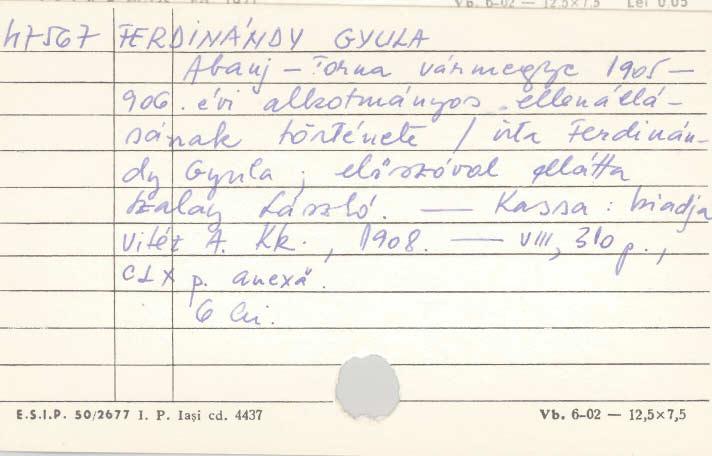 Vb. 6-02 — 12,5×7,5 Lei 0,05
47567 FERDINÁNDY GYULA
Abauj – Torna vármegye 1905–
906. évi alkotmányos ellenállá-
sának története / írta Ferdinán-
dy Gyula ; előszóval ellátta
Szalay László. — Kassa : kiadja
Vitéz A. Kk., 1908. — VIII, 310 p.,
CLX p. anexă.
6 lei.
E.S.I.P. 50/2677 I. P. Iași cd. 4437 Vb. 6-02 — 12,5×7,5